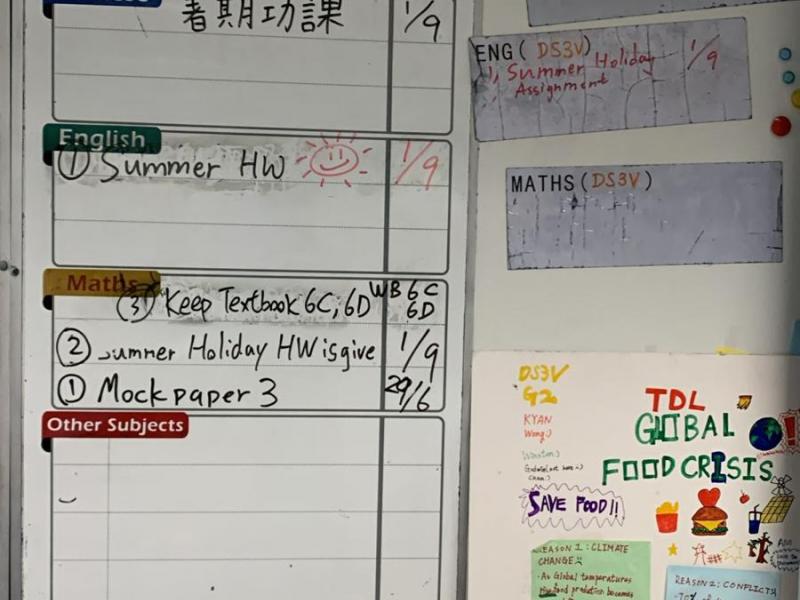 暑期功課 1/9
English
① Summer HW 1/9
Maths
③ Keep Textbook 6C; 6D WB 6C 6D
② Summer Holiday HW is give 1/9
① Mock paper 3 29/6
Other Subjects
ENG(DS3V)
1, Summer Holiday 1/9
Assignment
MATHS(DS3V)
DS3V
G2
KYAN
Wong:)
TDL
GLOBAL
FOOD CRISIS
SAVE FOOD!!
REASON 1: CLIMATE
CHANGE
· As Global temperatures
food prodution becomes
REASON 2: CONFLICTS